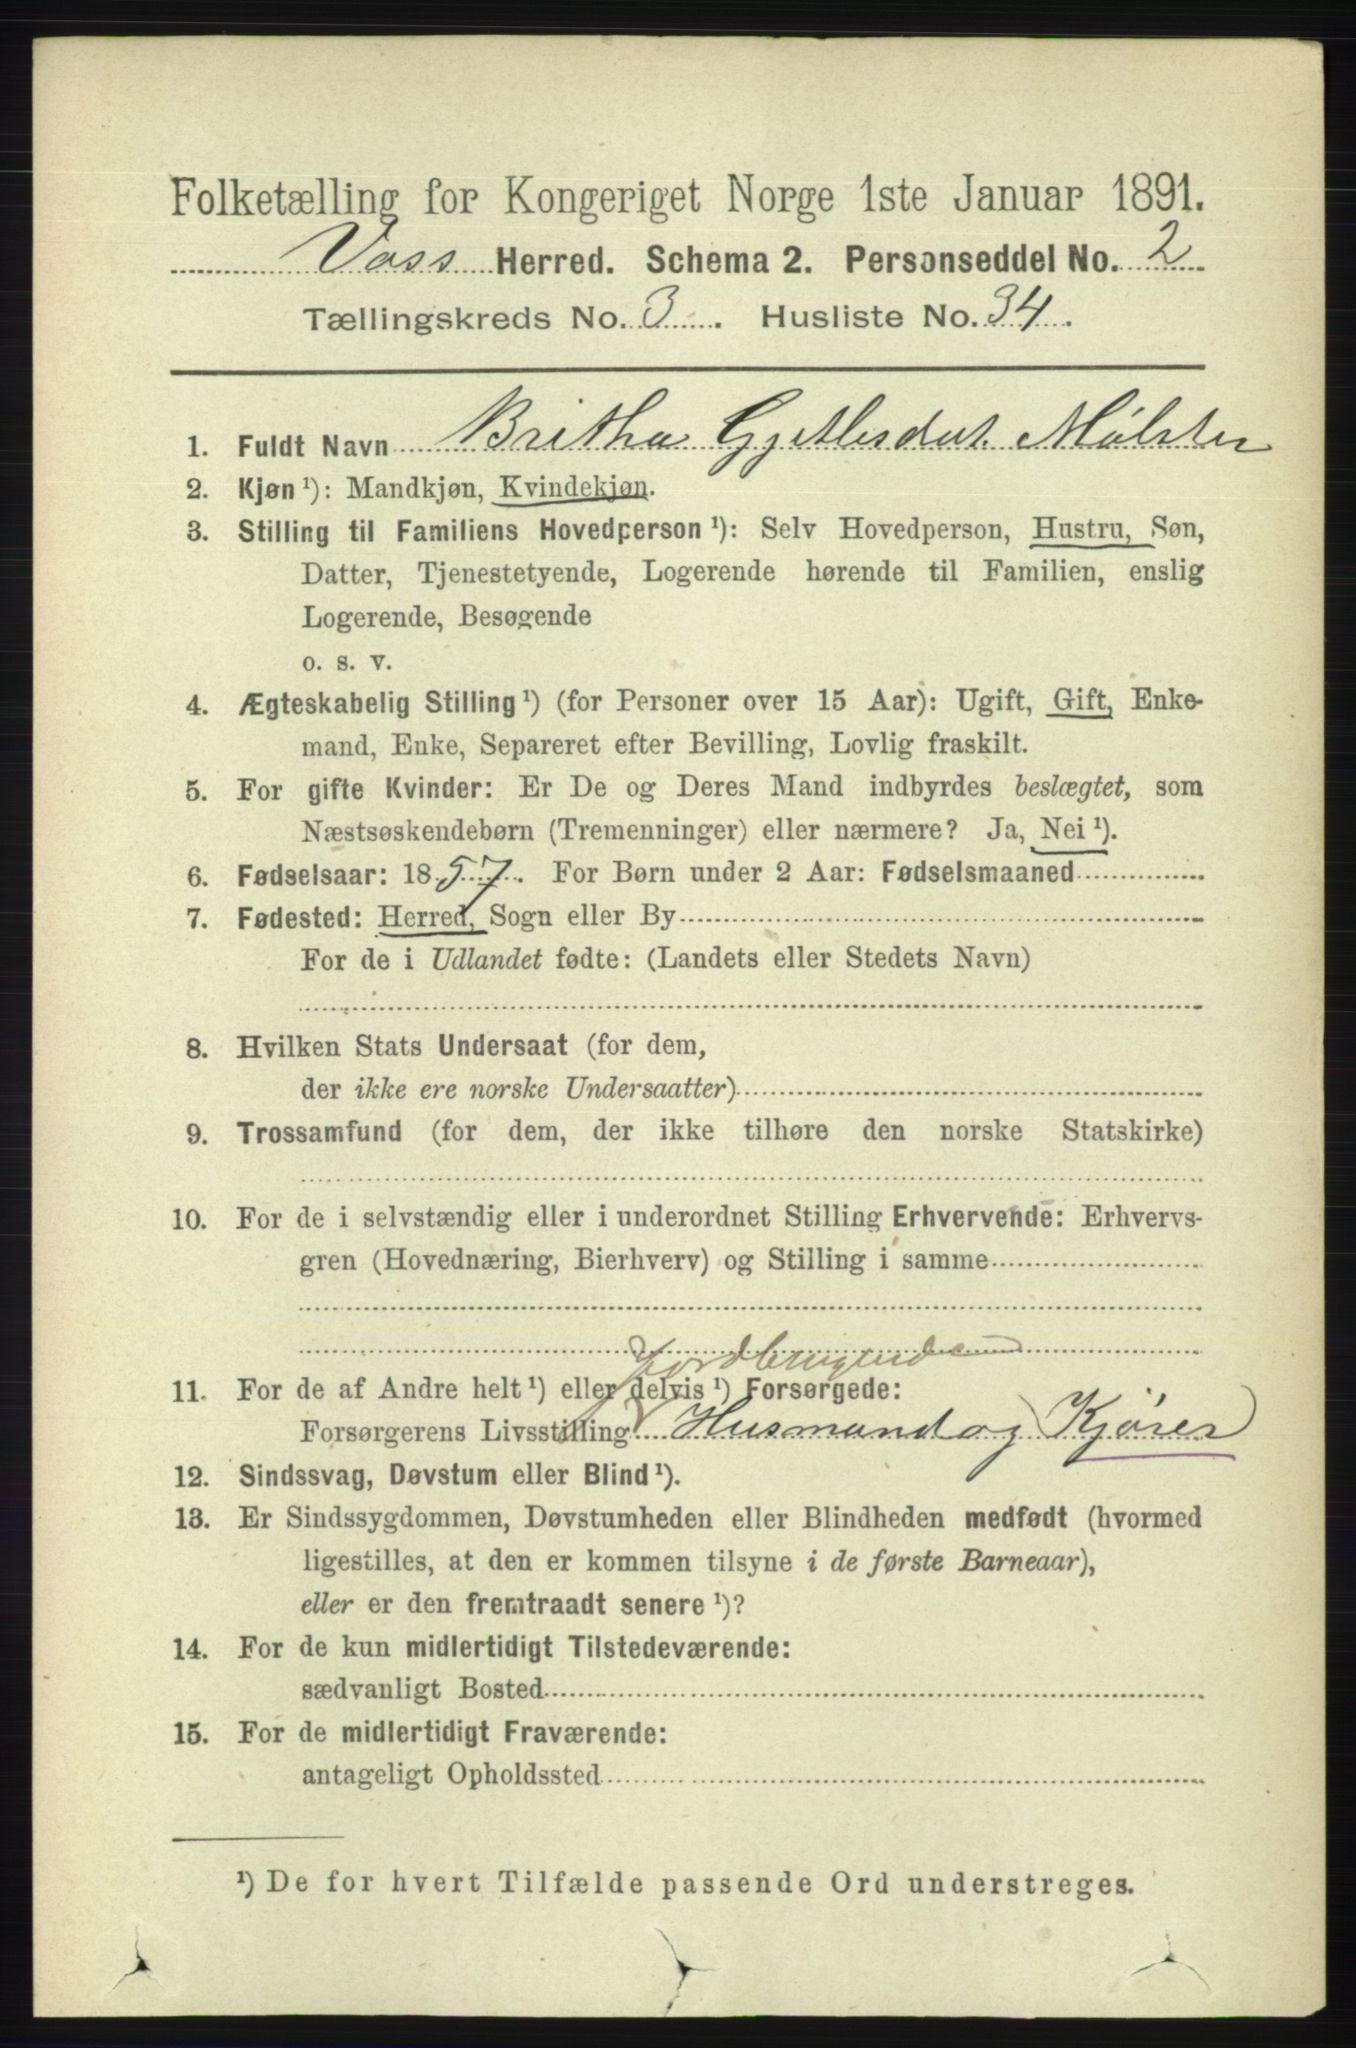 Folketælling for Kongeriget Norge 1ste Januar 1891.
Voss Herred. Schema 2. Personseddel No. 2
Tællingskreds No. 3. Husliste No. 34.
1. Fuldt Navn Britha Gjetlesdat. Mølster
2. Kjøn ¹): Mandkjøn, Kvindekjøn.
3. Stilling til Familiens Hovedperson ¹): Selv Hovedperson, Hustru, Søn,
Datter, Tjenestetyende, Logerende hørende til Familien, enslig
Logerende, Besøgende
o. s. v.
4. Ægteskabelig Stilling ¹) (for Personer over 15 Aar): Ugift, Gift, Enke-
mand, Enke, Separeret efter Bevilling, Lovlig fraskilt.
5. For gifte Kvinder: Er De og Deres Mand indbyrdes beslægtet, som
Næstsøskendebørn (Tremenninger) eller nærmere? Ja, Nei ¹).
6. Fødselsaar: 1857. For Børn under 2 Aar: Fødselsmaaned
7. Fødested: Herred, Sogn eller By
For de i Udlandet fødte: (Landets eller Stedets Navn)
8. Hvilken Stats Undersaat (for dem,
der ikke ere norske Undersaatter)
9. Trossamfund (for dem, der ikke tilhøre den norske Statskirke)
10. For de i selvstændig eller i underordnet Stilling Erhvervende: Erhvervs-
gren (Hovednæring, Bierhverv) og Stilling i samme
Jordbrugende
11. For de af Andre helt ¹) eller delvis ¹) Forsørgede:
Forsørgerens Livsstilling Husmand og Kjører
12. Sindssvag, Døvstum eller Blind ¹).
13. Er Sindssygdommen, Døvstumheden eller Blindheden medfødt (hvormed
ligestilles, at den er kommen tilsyne i de første Barneaar),
eller er den fremtraadt senere ¹)?
14. For de kun midlertidigt Tilstedeværende:
sædvanligt Bosted
15. For de midlertidigt Fraværende:
antageligt Opholdssted
¹) De for hvert Tilfælde passende Ord understreges.